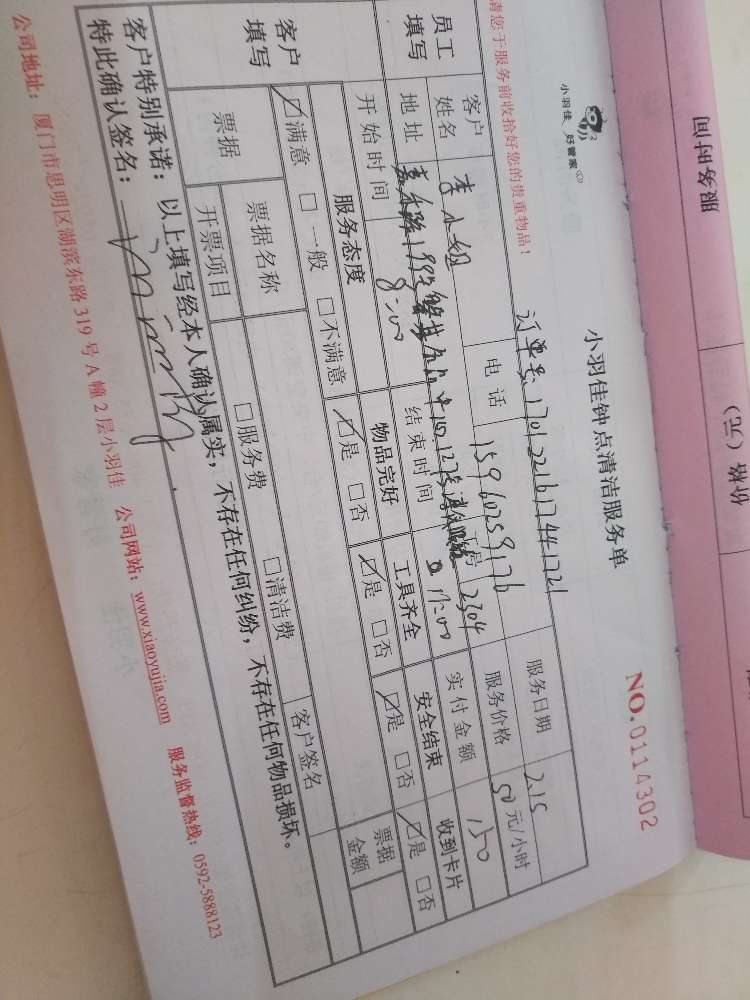 服务时间
价格（元）
小羽佳 好管家
小羽佳钟点清洁服务单
NO.0114302
请您于服务前收拾好您的贵重物品！
订单号:
服务日期 2.15
员工填写
客户姓名 李小姐 电话 15960259176 服务价格 50元/小时
地址 2304 实付金额 150
开始时间 8:00 结束时间 11:00 收到卡片
客户填写
服务态度 物品完好 工具齐全 安全结束 是 否
满意 一般 不满意 是 否 是 否 是 否
票据 票据名称 服务费 清洁费 票据金额
开票项目 客户签名
客户特别承诺：以上填写经本人确认属实，不存在任何纠纷，不存在任何物品损坏。
特此确认签名：
公司地址：厦门市思明区湖滨东路319号A幢2层小羽佳 公司网站：www.xiaoyujia.com 服务监督热线：0592-5888123